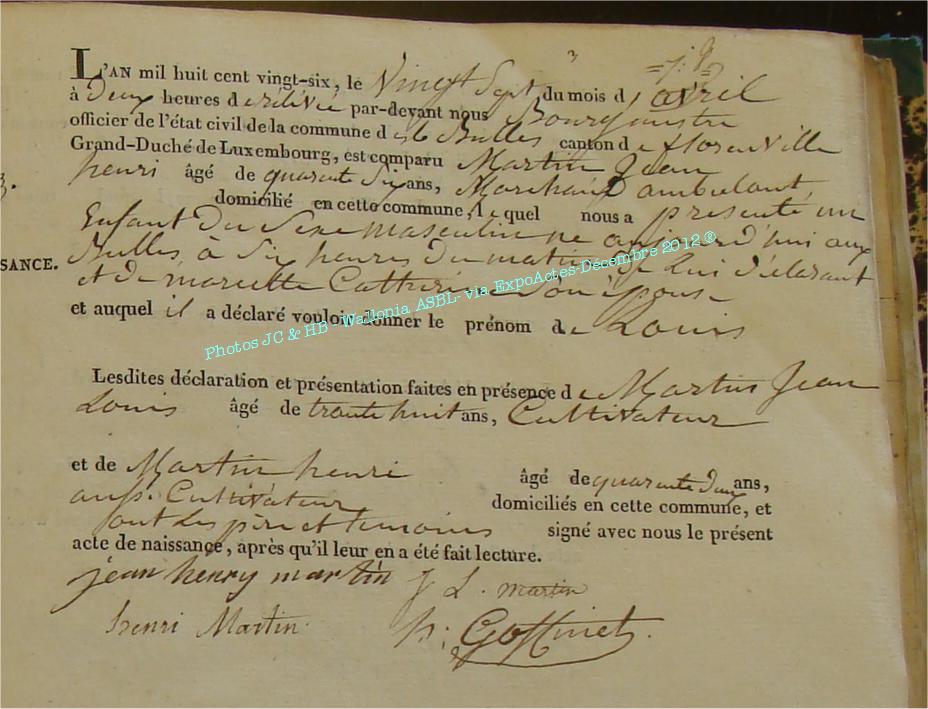 L'AN mil huit cent vingt-six, le Vingt Sept du mois d'avril
à Deux heures de rélévée par-devant nous Bourgmestre
officier de l'état civil de la commune des Bulles canton de florenville
Grand-Duché de Luxembourg, est comparu Martin Jean
henri âgé de quarante Six ans, Marchand ambulant,
domicilié en cette commune, lequel nous a présenté un
Enfant Du Sexe masculin né aujourd'hui aux
SANCE.
Bulles, à Six heures du matin, de Lui déclarant
et de marcette Catherine Son épouse
et auquel il a déclaré vouloir donner le prénom de Louis
Photos JC & HB - Wallonia ASBL- via ExpoActes-Décembre 2012 ®
Lesdites déclaration et présentation faites en présence de Martin Jean
Louis âgé de trante huit ans, Cultivateur
et de Martin henri âgé de quarante Deux ans,
aussi Cultivateur domiciliés en cette commune, et
ont Les père et temoins signé avec nous le présent
acte de naissance, après qu'il leur en a été fait lecture.
jean henry martin J L. martin
henri Martin. Goffinet.